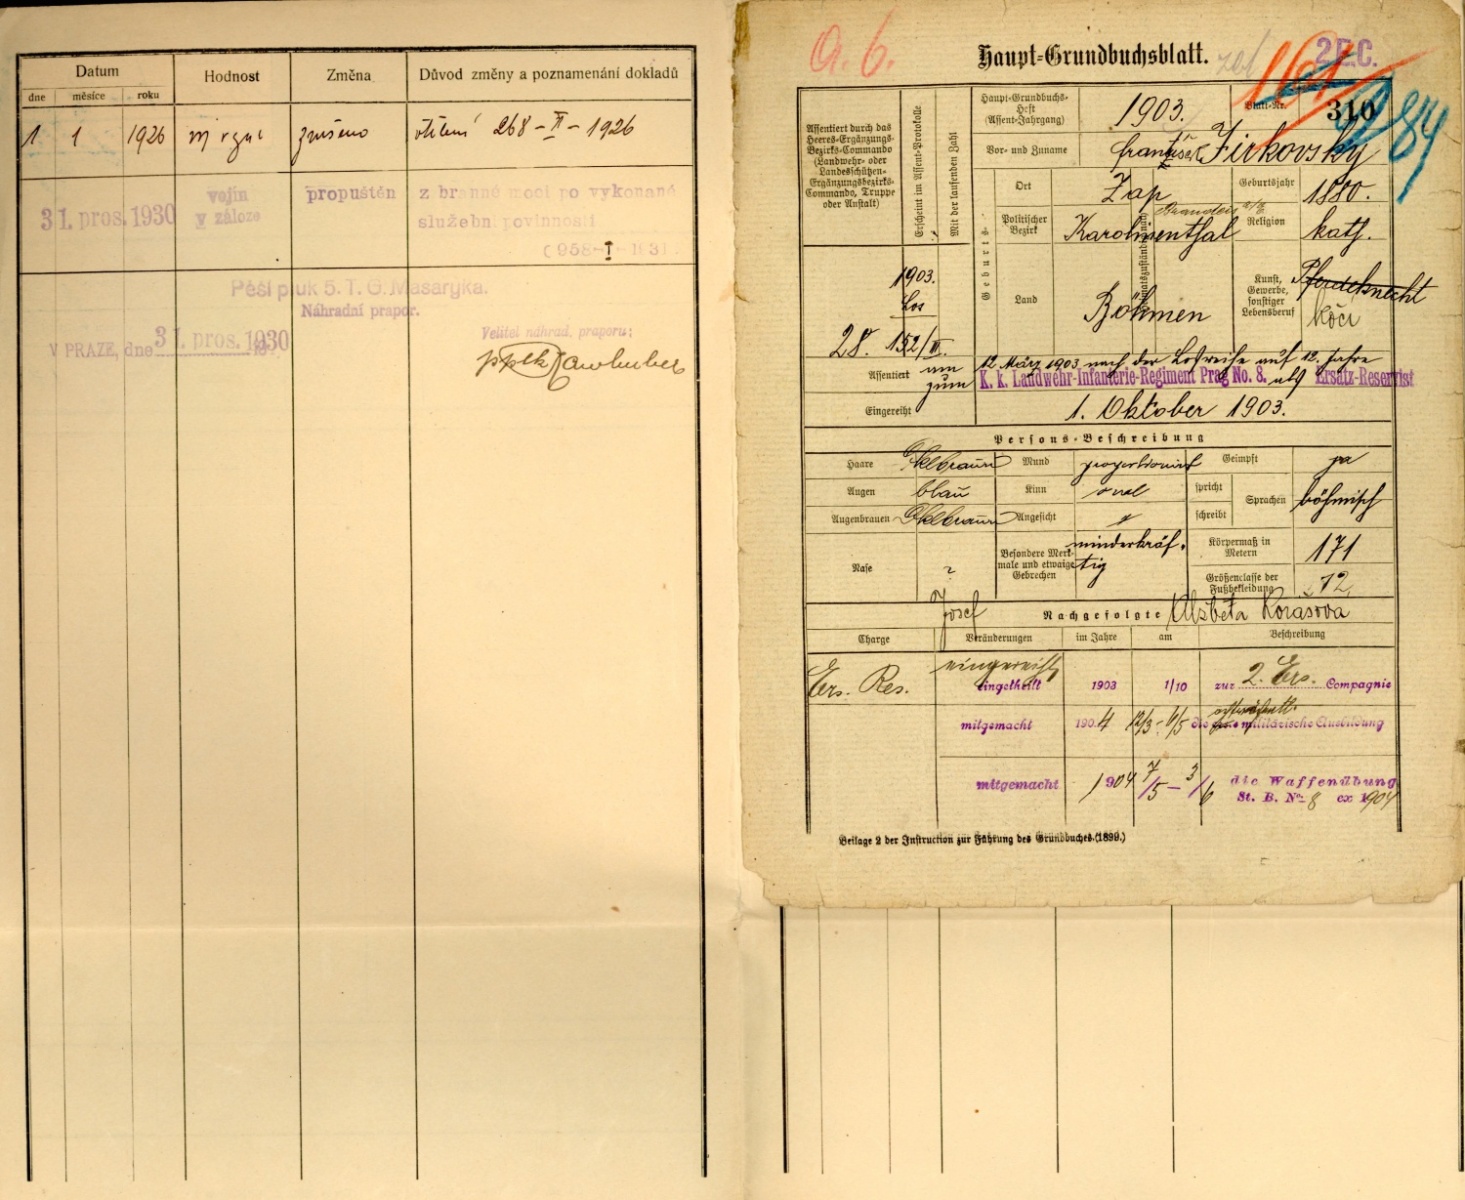 Datum
Hodnost
Změna
Důvod změny a poznamenání dokladů
dne
měsíce
roku
1 1 1926
zrušeno
268-II-1926
31. pros. 1930
vojín
v záloze
propuštěn
z branné moci po vykonané
služební povinnosti
(958-I-1931.
Pěší pluk 5. T. G. Masaryka.
Náhradní prapor.
V PRAZE, dne 31. pros. 1930
Velitel náhrad. praporu:
pplk
a. b.
Haupt-Grundbuchsblatt.
2 E.C.
161
84
Assentiert durch das
Heeres-Ergänzungs-
Bezirks-Commando
(Landwehr- oder
Landesschützen-
Ergänzungsbezirks-
Commando, Truppe
oder Anstalt)
Erscheint im Assent-Protokolle
Mit der laufenden Zahl
Haupt-Grundbuchs-
Heft
(Assent-Jahrgang)
1903.
Blatt-Nr.
310
Vor- und Zuname
František Jirkovsky
Geburts-
Ort
Zap
Geburtsjahr
1880.
Politischer
Bezirk
Karolinenthal
Brandeis a/E
Religion
kath.
Land
Böhmen
Kunst,
Gewerbe,
sonstiger
Lebensberuf
Pferdeknecht
kočí
28.
1903.
Los
152/II.
Assentiert
am
12 März 1903 nach der Losreihe auf 12. Jahre
zum
K. k. Landwehr-Infanterie-Regiment Prag No. 8. als Ersatz-Reservist
Eingereiht
1. Oktober 1903.
Persons-Beschreibung
Haare
Mund
proportionirt
Geimpft
ja
Augen
blau
Kinn
oval
spricht
schreibt
Sprachen
böhmisch
Augenbrauen
Angesicht
Nase
Besondere Merk-
male und etwaige
Gebrechen
minderkräf-
tig
Körpermaß in
Metern
171
Größenclasse der
Fußbekleidung
12
Josef
Nachgefolgte
Alžběta
Charge
Veränderungen
im Jahre
am
Beschreibung
Ers. Res.
eingereiht
eingetheilt
1903
1/10
zur 2. Ers. Compagnie
mitgemacht
1904
12/3-6/5
die militärische Ausbildung
mitgemacht
1904
7/5-3/6
die Waffenübung
St. B. No 8 ex 1904
Beilage 2 der Instruction zur Führung des Grundbuches (1899.)